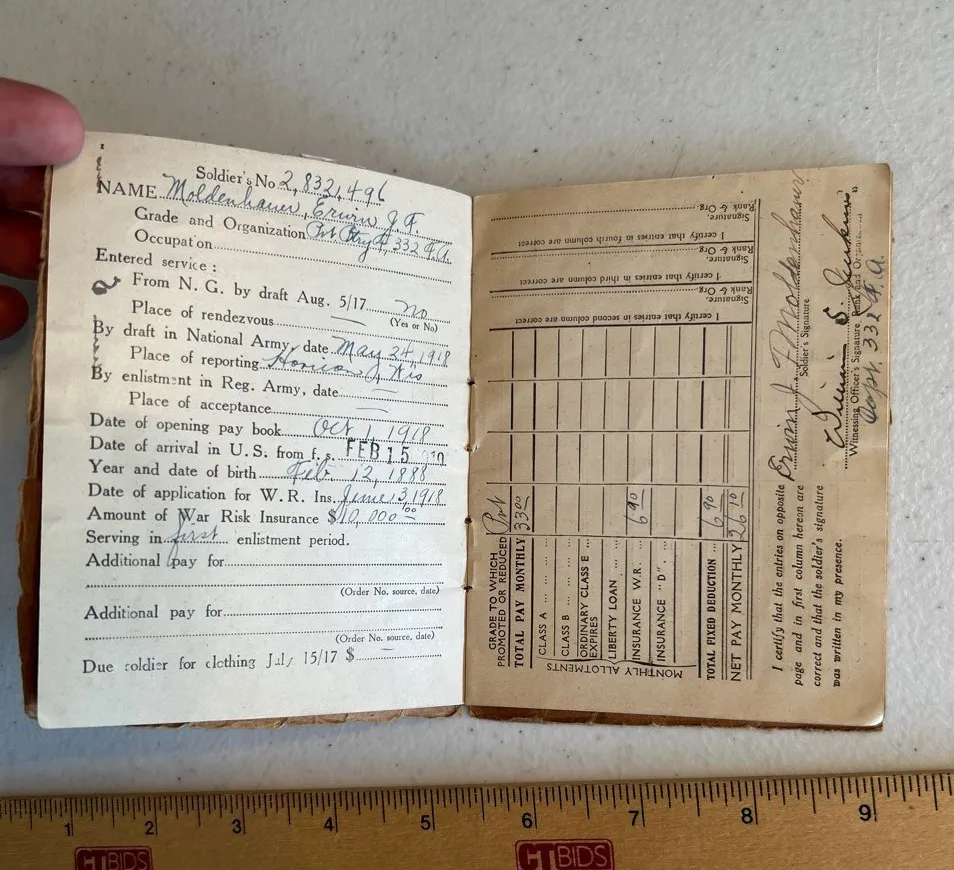 1
Soldier's No 2,832,496
NAME Moldenhauer, Erwin J. F.
Grade and Organization Pvt Btry F, 332 F.A.
Occupation
Entered service:
From N. G. by draft Aug. 5/17 no
(Yes or No)
Place of rendezvous
By draft in National Army, date May 24, 1918
Place of reporting Horicon, Wis
By enlistment in Reg. Army, date
Place of acceptance
Date of opening pay book Oct 1, 1918
Date of arrival in U. S. from f. s. FEB 15
Year and date of birth Feb. 12, 1888
Date of application for W. R. Ins. June 3, 1918
Amount of War Risk Insurance $10,000.00
Serving in first enlistment period.
Additional pay for
(Order No. source, date)
Additional pay for
(Order No. source, date)
Due soldier for clothing July 15/17 $
GRADE TO WHICH PROMOTED OR REDUCED Pvt
TOTAL PAY MONTHLY 33 00
MONTHLY ALLOTMENTS
CLASS A
CLASS B
ORDINARY CLASS E EXPIRES
LIBERTY LOAN
INSURANCE W.R. 6 90
INSURANCE "D"
TOTAL FIXED DEDUCTION 6 90
NET PAY MONTHLY 26 10
I certify that the entries on opposite
page and in first column hereon are
correct and that the soldier's signature
was written in my presence.
Erwin J Moldenhauer
Soldier's Signature
S. Jenkins
Witnessing Officer's Signature, Rank and Organ
Capt. 332 F.A.
I certify that entries in second column are correct
Signature.
Rank & Org.
I certify that entries in third column are correct
Signature.
Rank & Org.
I certify that entries in fourth column are correct
Signature.
Rank & Org.
1 2 3 4 5 6 7 8 9
CTBIDS
CTBIDS